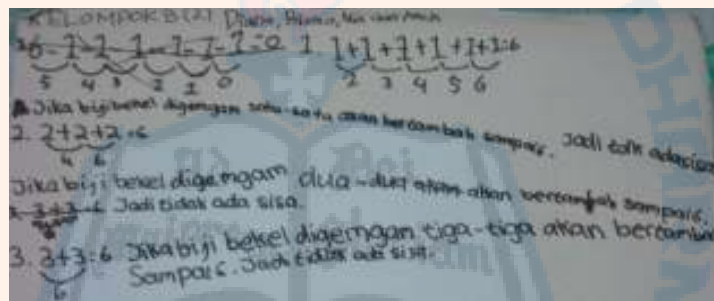 KELOMPOK B(2)
6-1-1-1-1-1-1=0 1 1+1+1+1+1+1=6
5 4 3 2 1 0 2 3 4 5 6
Jika biji bekel digemgam satu-satu akan bertambah sampai 6. Jadi tdk ada sisa
2. 2+2+2=6
4 6
Jika biji bekel digemgam dua-dua akan akan bertambah sampai 6.
3. 3+3=6 Jadi tidak ada sisa.
3. 3+3=6 Jika biji bekel digemgan tiga-tiga akan bertambah
6 Sampai 6. Jadi tidak ada sisa.